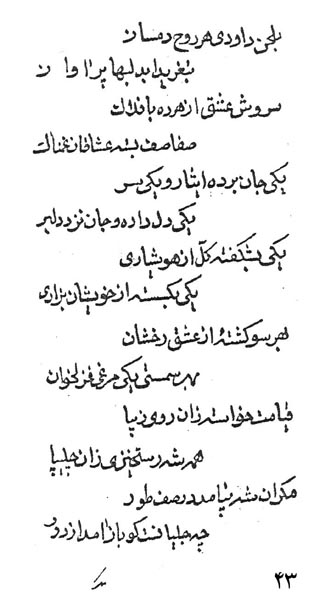 بلحن داودی هر روح دمسان
بتغرید ابدلبها پر از اوان
سروش عشق از هر ده با فلاک
صفا صف بسته عشاقان غمناک
یکی جان برده ایثار و یکی سر
یکی دل داده و جان نزد دلبر
یکی بشکفته گل از هوشیاری
یکی بگسسته از خویشان بزاری
بهر سو کشتهٔ از عشق رخشان
بهر سمتی یکی مرغی غزلخوان
قیامت خواسته زان روی زیبا
همه شد رستخیزی زان چلیپا
مکر ان شه بیامد در صف طور
چه جلیا فت کو باز امد از دور
۴۳